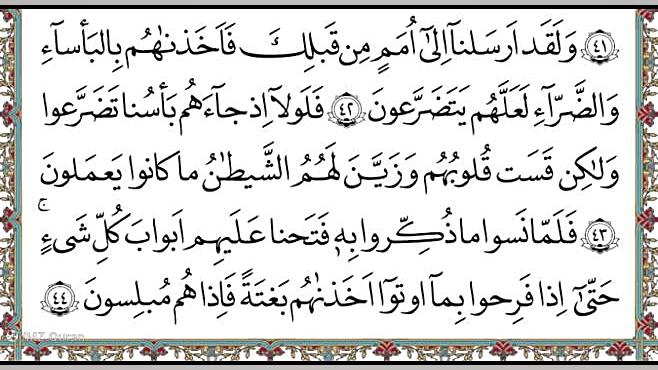 ﴿٤١﴾ وَلَقَد اَرسَلنَاۤ اِلٰٓى اُمَمٍ مِن قَبلِكَ فَاَخَذنٰهُم بِالبَأسَآءِ
وَالضَّرَّآءِ لَعَلَّهُم يَتَضَرَّعونَ ﴿٤٢﴾ فَلَولَاۤ اِذ جآءَهُم بَأسُنا تَضَرَّعوا
وَلٰكِن قَسَت قُلوبُهُم وَزَيَّنَ لَهُمُ الشَّيطٰنُ ما كانوا يَعمَلونَ
﴿٤٣﴾ فَلَمّا نَسوا ما ذُكِّروا بِهٖ فَتَحنا عَلَيهِم اَبوابَ كُلِّ شَىءٍ ؕ
حَتّٰٓى اِذا فَرِحوا بِمَاۤ اوتوۤا اَخَذنٰهُم بَغتَةً فَاِذا هُم مُبلِسونَ ﴿٤٤﴾
Quran